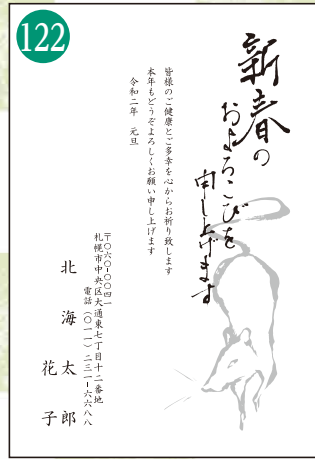 122
新春の
およろこびを
申し上げます
皆様のご健康とご多幸を心からお祈り致します
本年もどうぞよろしくお願い申し上げます
令和二年　元旦
〒〇六〇-〇〇四一
札幌市中央区大通東七丁目十二番地
電話（〇一一）二三一-六六八八
北海太郎
花子